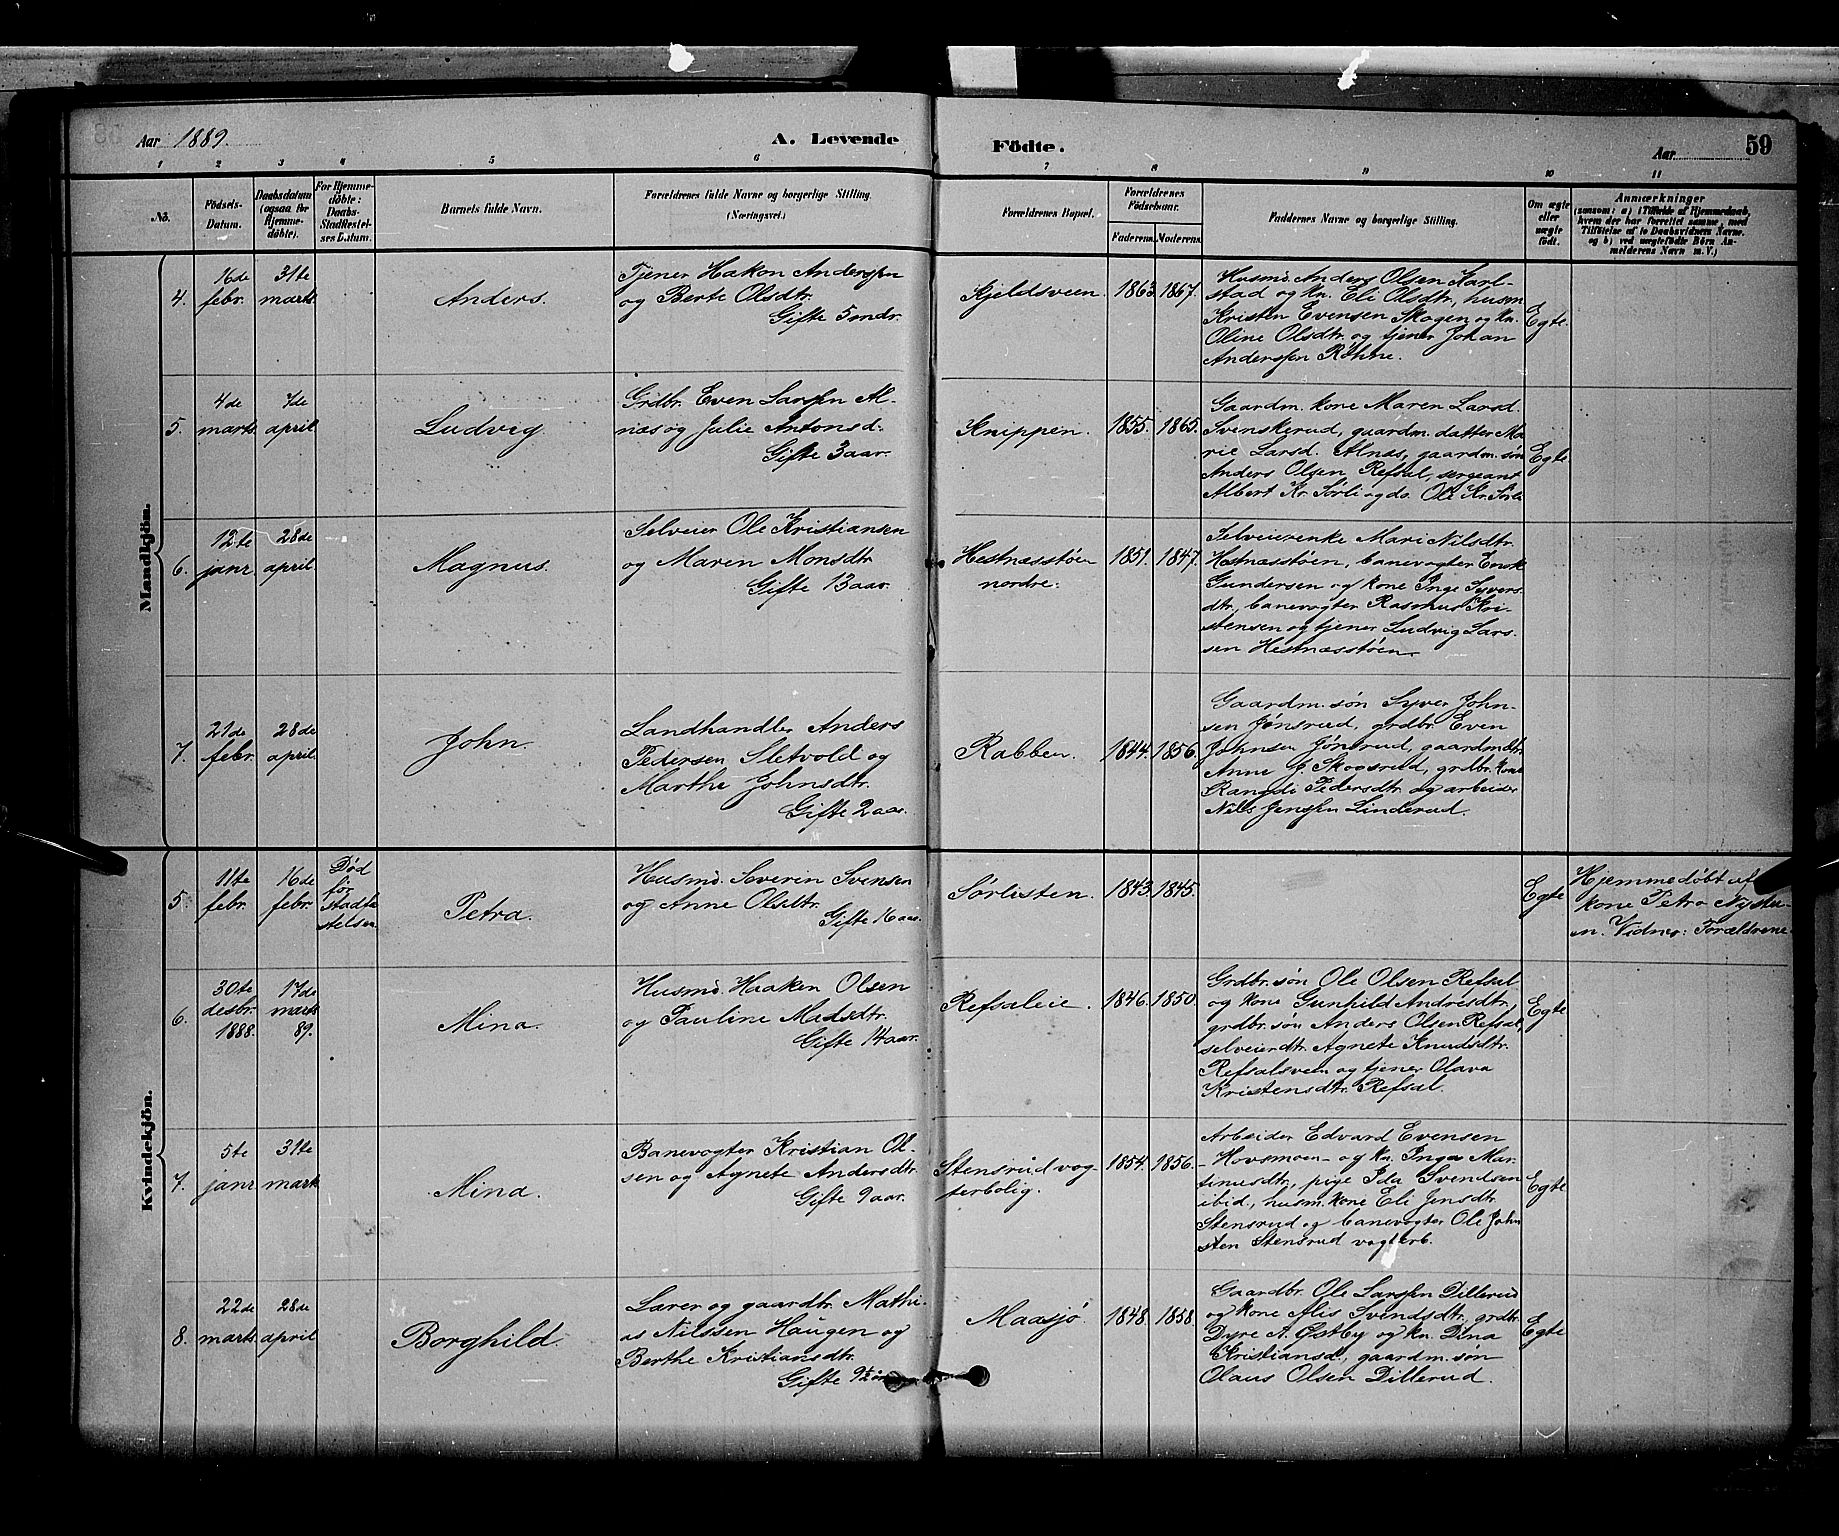 Aar 1889.
A. Levende
Födte.
Aar
59
1 2 3 4 5 6 7 8 9 10 11
No.
Födsels-
Datum.
Daabsdatum
(ogsaa for
Hjemme-
döbte).
For Hjemme-
döbte:
Daabs-
Stadfæstel-
ses Datum.
Barnets fulde Navn.
Forældrenes fulde Navne og borgerlige Stilling.
(Næringsvei.)
Forældrenes Bopæl.
Forældrenes
Födselsaar.
Faderens. Moderens.
Faddernes Navne og borgerlige Stilling.
Om ægte
eller
uægte
födt.
Anmærkninger
(saasom: a) i Tilfælde af Hjemmedaab,
hvem der har forrettet samme, med
Tilföielse af to Daabsvidners Navne,
og b) ved uægtefödte Börn An-
melderens Navn m. V.)
Mandkjön.
4.
16de
febr.
31te
marts
Anders.
Tjener Hakon Anderssen
og Berte Olsdtr.
Gifte 5 mdr.
Kjeldsveen.
1863. 1867.
Husmd. Anders Olsen Karl-
stad og kn. Eli Olsdtr, husm
Kristen Evensen Skogen og kn.
Oline Olsdtr. og tjener Johan
Anderssen Röhne.
Egte.
5.
4de
marts
7de
april
Ludvig.
Grdbr. Even Larssen Al-
næs og Julie Antonsd.
Gifte 3 aar.
Knippen.
1855. 1865.
Gaardm. kone Maren Larsd.
Svenskerud, gaardm. datter Ma-
rie Larsd. Alnæs, gaardm. søn
Anders Olsen Refsal, sergeant
Albert Kr. Sørli og do. Ole Kr. Sørli
Egte
6.
12te
janr.
28de
april.
Magnus.
Selveier Ole Kristiansen
og Maren Monsdtr.
Gifte 13 aar.
Hestnæsstøen
nordre.
1851. 1847.
Selveierenke Mari Nilsdtr.
Hestnæsstøen, banevogter
Gundersen og kone Inge Syvers-
dtr, banevogter Rasmus Kri-
stensen og tjener Ludvig Lars-
sen Hestnæsstøen.
7.
21de
febr.
28de
april.
John.
Landhandler Anders
Pedersen Sletvold og
Marthe Johnsdtr.
Gifte 2 aar.
Rabben.
1844. 1856.
Gaardm. søn Syver John-
sen Jønsrud, grdbr. Even
Johnsen Jønsrud, gaardmdtr.
Anne J. Skogsrud, grdbr. kone
Rangdi Pedersdtr og arbeider
Nils Jenssen Linderud.
Kvindekjön.
5.
11te
febr.
16de
febr.
Død
før
stadfæ-
stelsen
Petra.
Husmd. Severin Svensen
og Anne Olsdtr.
Gifte 16 aar.
Sørlisten.
1843. 1845.
Egte
Hjemmedøbt af
kone Petra Nystu-
en. Vidner: Forældrene.
6.
30te
desbr.
1888.
17de
marts
89.
Mina.
Husmd. Haaken Olsen
og Pauline Madsdtr.
Gifte 14 aar.
Refsaleie.
1846. 1850.
Grdbr. søn Ole Olsen Refsal
og kone Gunhild Andresdtr,
grdbr. søn Anders Olsen Refsal,
selveierdtr. Agnete Knudsdtr.
Refsalsveen og tjener Olava
Kristensdtr. Refsal.
Egte
7.
5te
janr.
31te
marts
Mina.
Banevogter Kristian Ol-
sen og Agnete Andersdtr.
Gifte 9 aar.
Stensrud vog-
terbolig.
1854. 1856.
Arbeider Edvard Evensen
- Hovsmoen - og kn. Inga Mar-
tinusdtr, pige Ida Svendsen
ibid., husm. kone Eli Jensdtr.
Stensrud og banevogter Ole John
sten Stensrud vogterb.
Egte
8.
22de
marts.
28de
april
Borghild.
Lærer og gaardbr. Mathi-
as Nilssen Haugen og
Berthe Kristiansdtr.
Gifte 9½ aar
Maasjø
1848. 1858.
Gaardbr. Ole Larssen Dillerud
og kone Alis Svendsdtr, grdbr.
Dyre A. Østby og kn. Dina
Kristiansd., gaardm. søn
Olaus Olsen Dillerud.
Egte